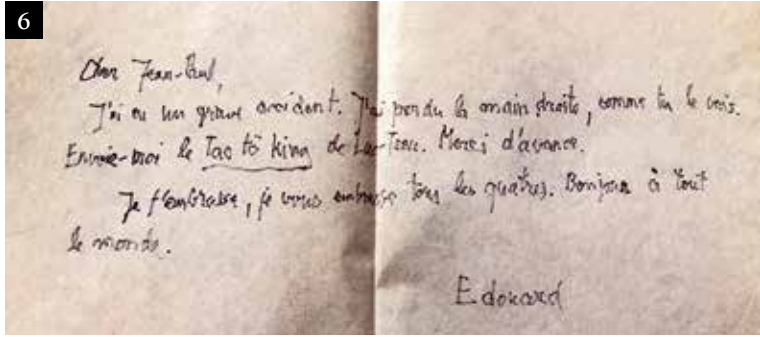 6
Cher Jean-Paul,
J'ai eu un grave accident. J'ai perdu la main droite, comme tu le vois.
Envoie-moi le Tao tö king de Lao-Tseu. Merci d'avance.
Je t'embrasse, je vous embrasse tous les quatres. Bonjour à tout
le monde.
Edouard